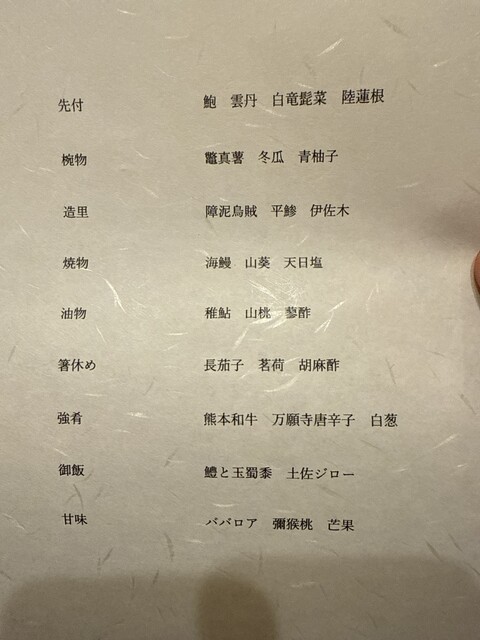 先付 鮑 雲丹 白竜髭菜 陸蓮根
椀物 鼈真薯 冬瓜 青柚子
造里 障泥烏賊 平鯵 伊佐木
焼物 海鰻 山葵 天日塩
油物 稚鮎 山桃 蓼酢
箸休め 長茄子 茗荷 胡麻酢
強肴 熊本和牛 万願寺唐辛子 白葱
御飯 鱧と玉蜀黍 土佐ジロー
甘味 ババロア 彌猴桃 芒果